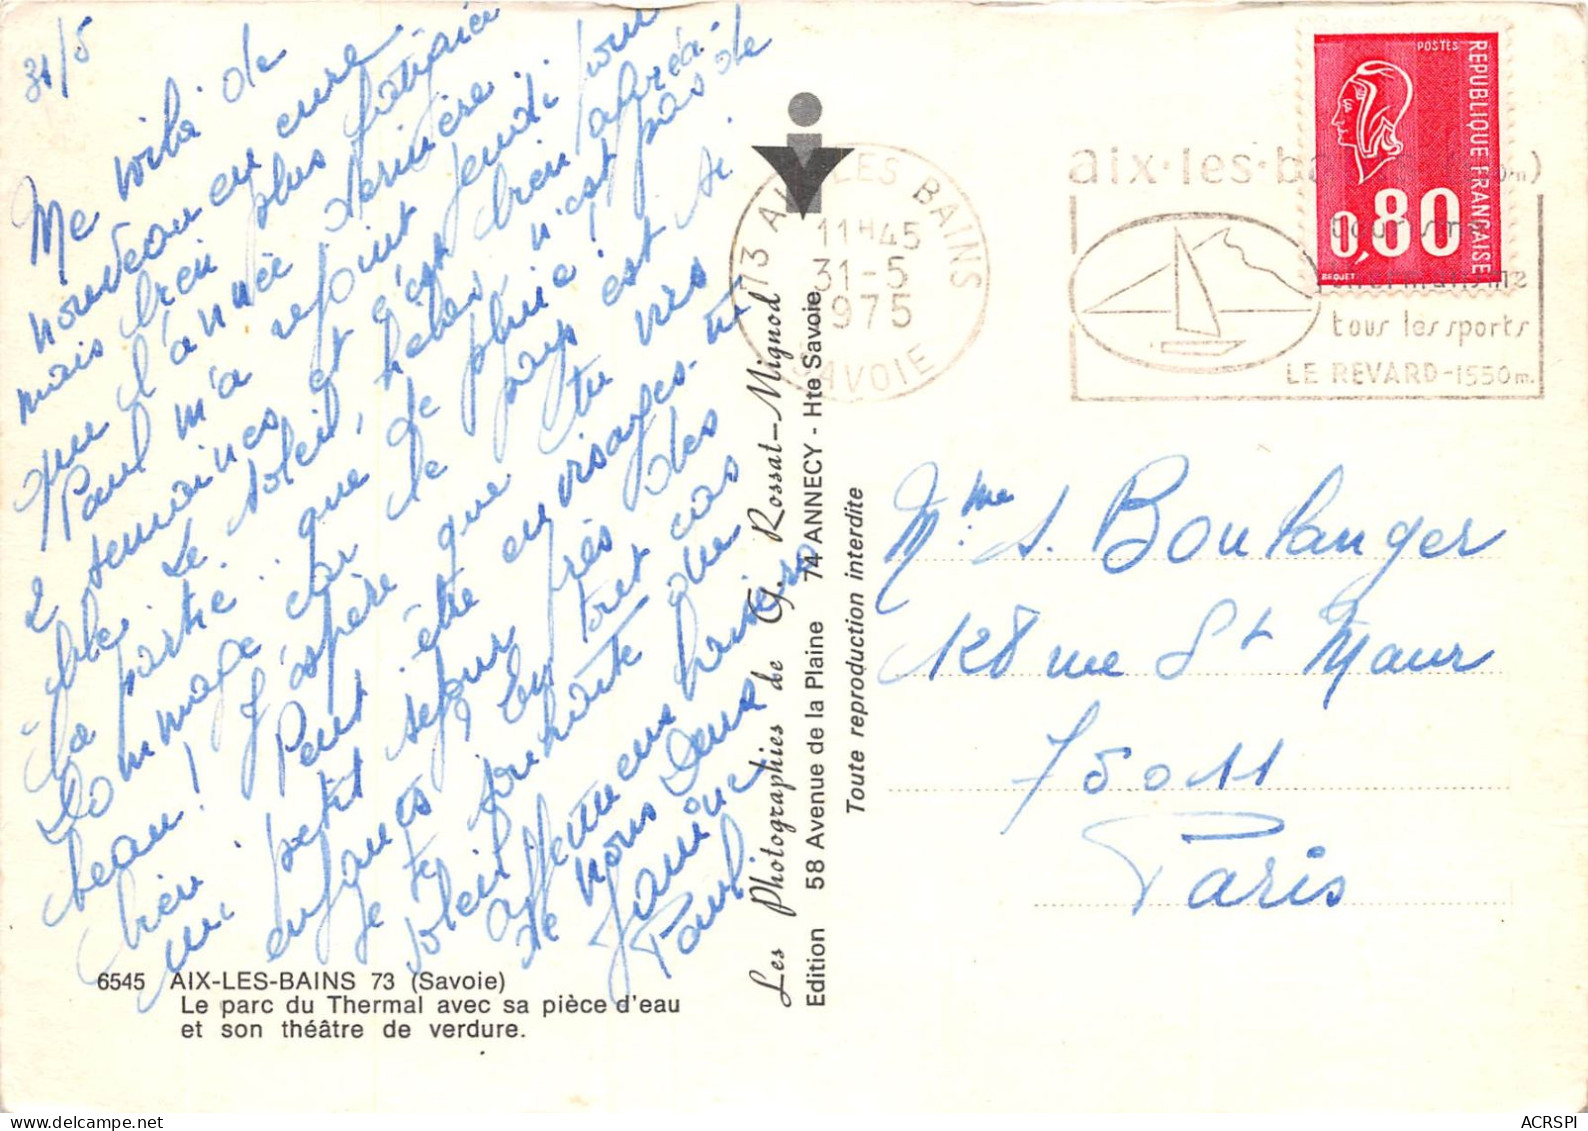 31/5
Me voilà de
nouveau en cure
mais bien plus fatiguée
que l'année dernière
Paul m'a rejoint jeudi pour
2 semaines et c'est bien agréa-
ble. Le soleil, hélas, n'est pas de
la partie... que de pluie !
Dommage car le pays est si
beau ! J'espère que tu vas
bien. Peut être envisages-tu
un petit séjour près des
enfants ? En tout cas
je te souhaite du
soleil
affectueux baisers
de nous deux
Janine
Paul
6545 AIX-LES-BAINS 73 (Savoie)
Le parc du Thermal avec sa pièce d'eau
et son théâtre de verdure.
Les Photographies de G. Rossat-Mignod
Edition 58 Avenue de la Plaine 74 ANNECY - Hte Savoie
Toute reproduction interdite
73 AIX LES BAINS
11H45
31-5
1975
SAVOIE
aix-les-b
tourisme
tous les sports
LE REVARD-1550m.
POSTES
REPUBLIQUE FRANÇAISE
0,80
BEQUET
Mme S. Boulanger
128 rue St Maur
75011
Paris
ACRSPI